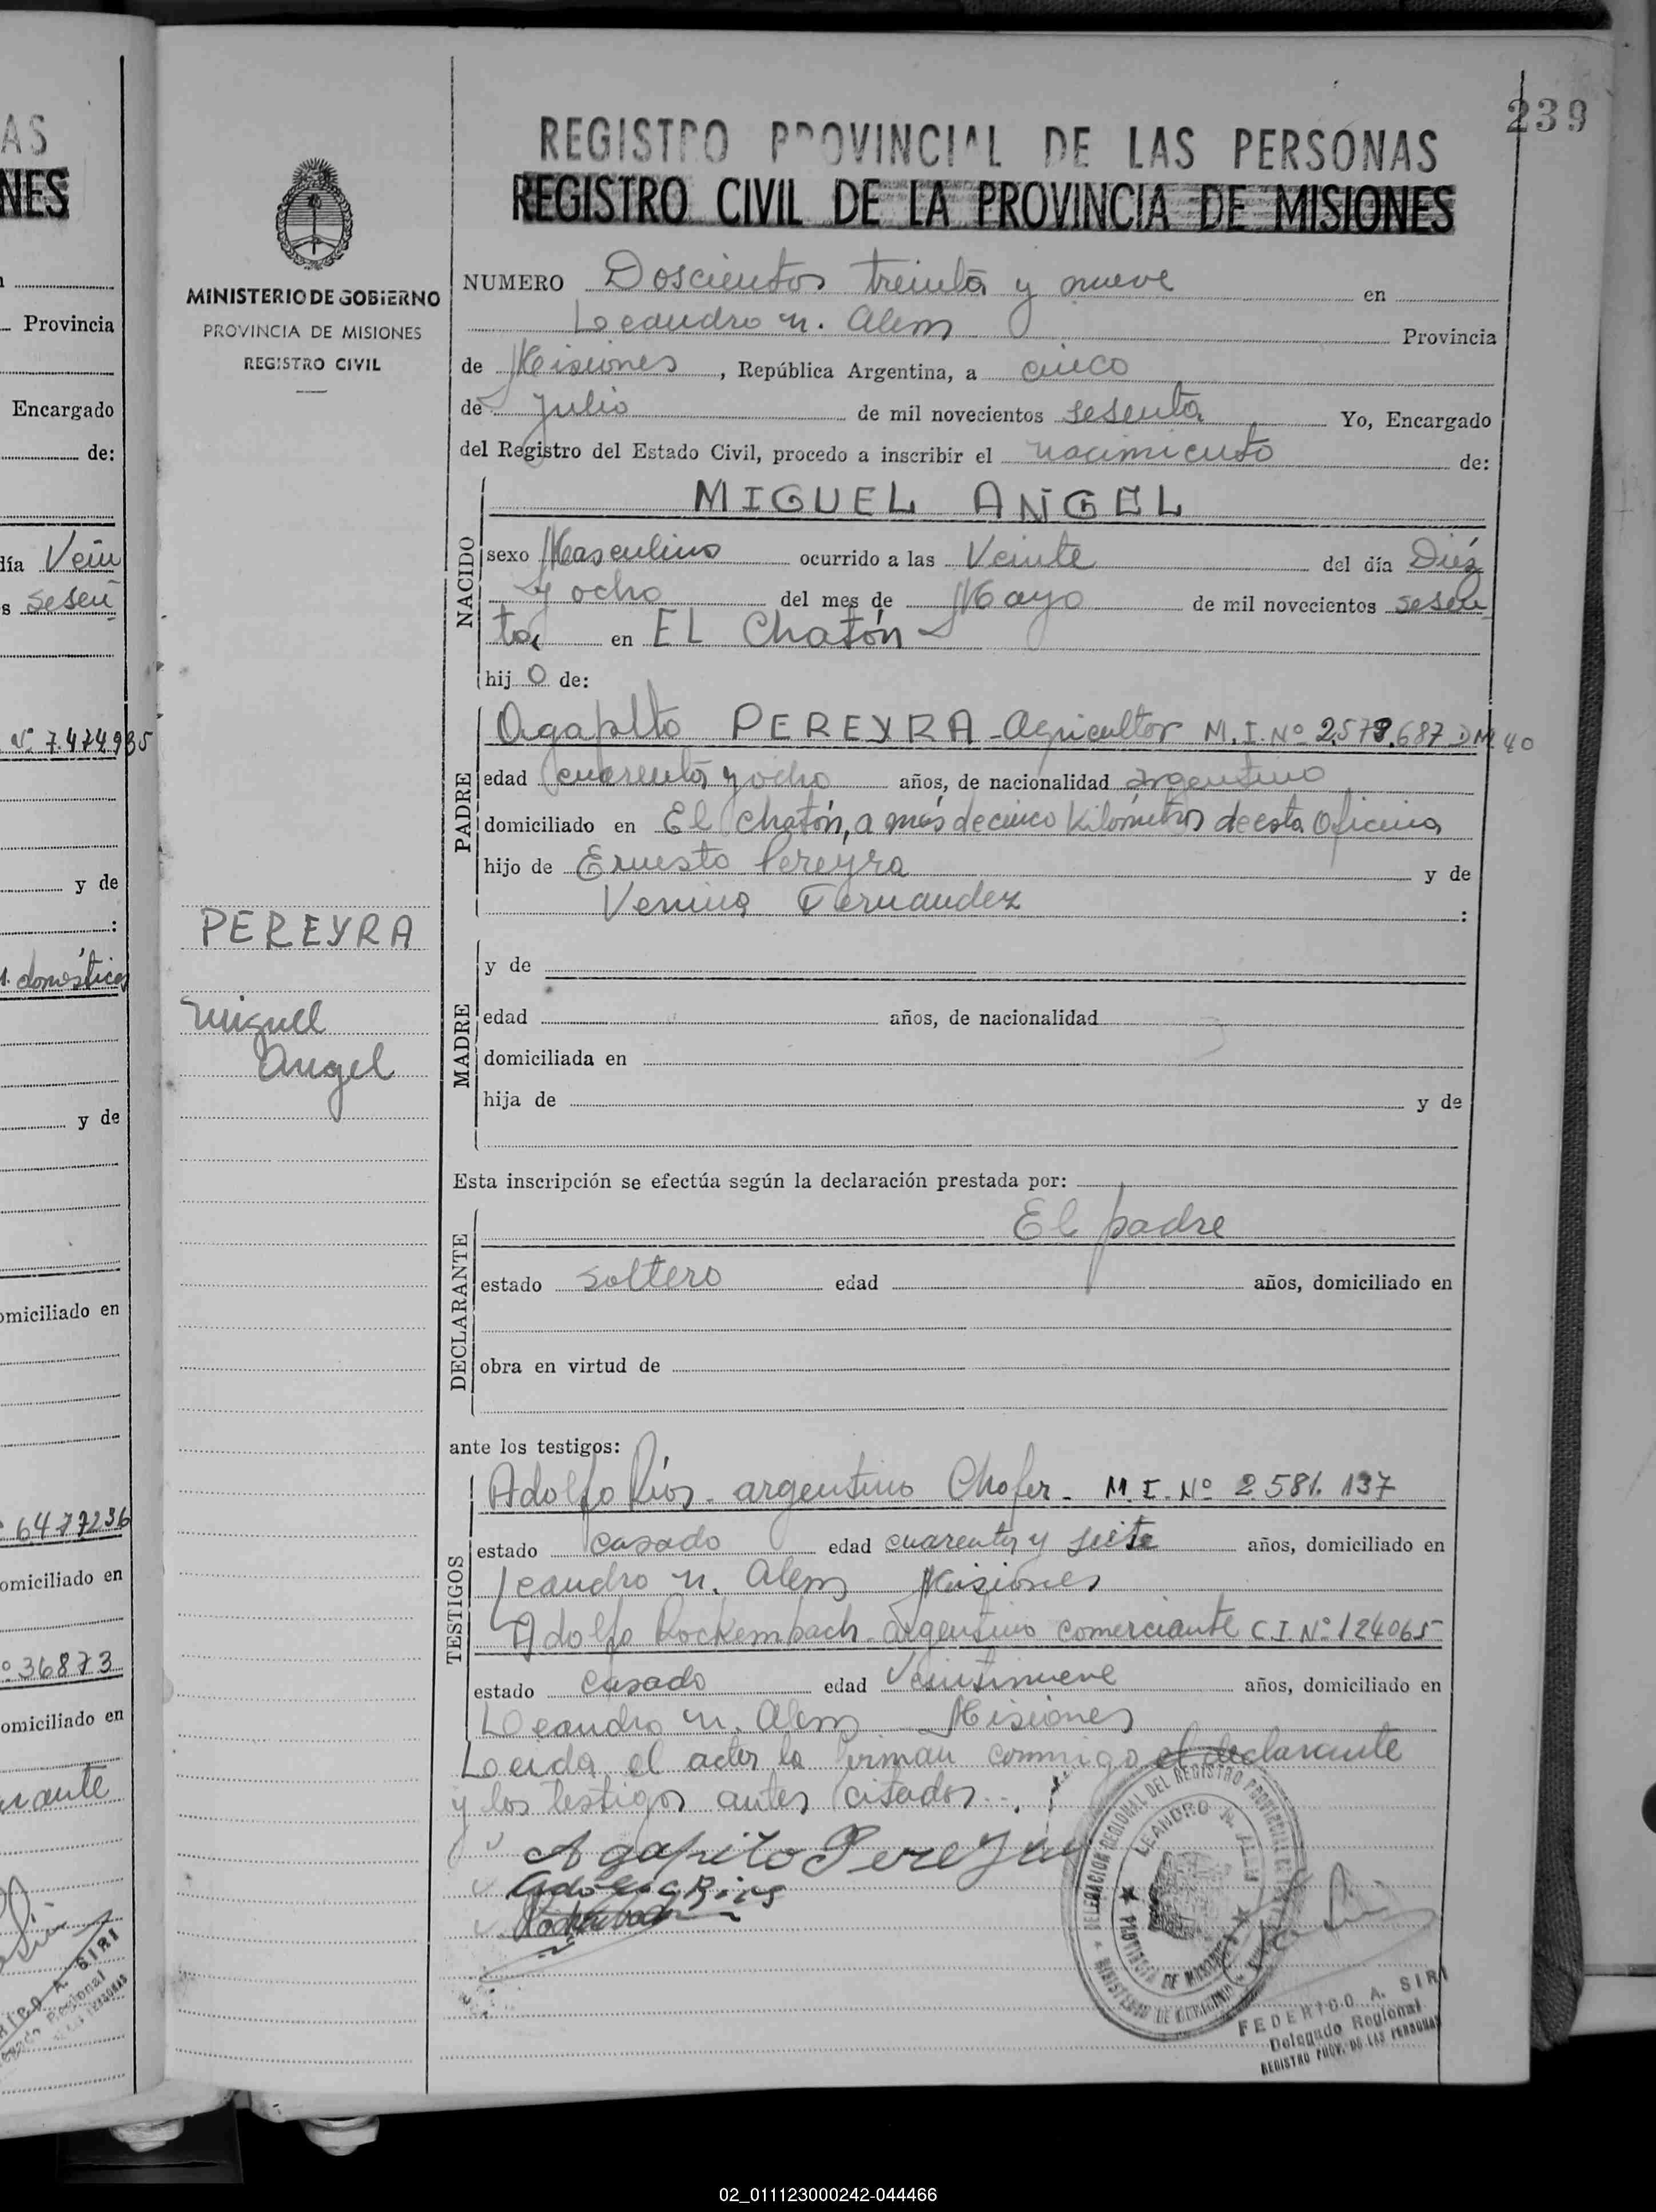 239
REGISTRO PROVINCIAL DE LAS PERSONAS
REGISTRO CIVIL DE LA PROVINCIA DE MISIONES
MINISTERIO DE GOBIERNO
PROVINCIA DE MISIONES
REGISTRO CIVIL
NUMERO Doscientos treinta y nueve en
Leandro N. Alem Provincia
de Misiones, República Argentina, a cinco
de Julio de mil novecientos sesenta Yo, Encargado
del Registro del Estado Civil, procedo a inscribir el nacimiento de:
NACIDO
MIGUEL ANGEL
sexo Masculino ocurrido a las Veinte del día Diez
y ocho del mes de Mayo de mil novecientos sesen
ta en EL Chatón
hij o de:
PADRE
Agapito PEREYRA - Agricultor M.I. Nº 2.573.687 DM 40
edad cuarenta y ocho años, de nacionalidad argentino
domiciliado en El Chatón, a más de cinco kilómetros de esta Oficina
hijo de Ernesto Pereyra y de
Fernandez :
PEREYRA
Miguel
Angel
MADRE
y de
edad años, de nacionalidad
domiciliada en
hija de y de
Esta inscripción se efectúa según la declaración prestada por:
DECLARANTE
El padre
estado soltero edad años, domiciliado en
obra en virtud de
ante los testigos:
TESTIGOS
Adolfo Ríos - argentino Chofer - M.I. Nº 2.581.137
estado casado edad cuarenta y siete años, domiciliado en
Leandro N. Alem Misiones
Adolfo Rockembach - argentino comerciante C.I Nº 124065
estado casado edad Veintinueve años, domiciliado en
Leandro N. Alem Misiones
Leida el acta la firman conmigo el declarante
y los testigos antes citados.
Agapito Pereyra
Adolfo Rios
DELEGACION REGIONAL DEL REGISTRO PROVINCIAL
LEANDRO N. ALEM
PROVINCIA DE MISIONES
MINISTERIO DE GOBIERNO
FEDERICO A. SIRI
Delegado Regional
REGISTRO PROV. DE LAS PERSONAS
AS
NES
Provincia
Encargado
de:
día Vein
s sesen
Nº 7.474.985
y de
:
domésticos
y de
omiciliado en
6477236
omiciliado en
º 36873
omiciliado en
arante
A. SIRI
Regional
02_011123000242-044466